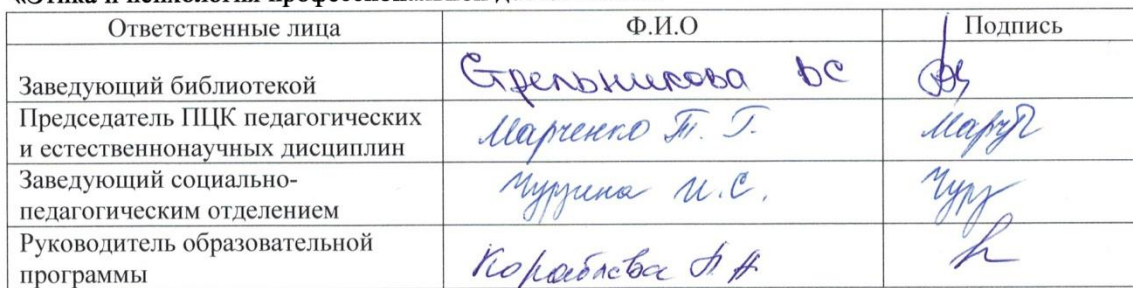 «Этика и психология профессиональной
Ответственные лица Ф.И.О Подпись
Заведующий библиотекой Стрельникова ВС
Председатель ПЦК педагогических
и естественнонаучных дисциплин Марченко Т. Г.
Заведующий социально-
педагогическим отделением И.С.
Руководитель образовательной
программы Кораблева